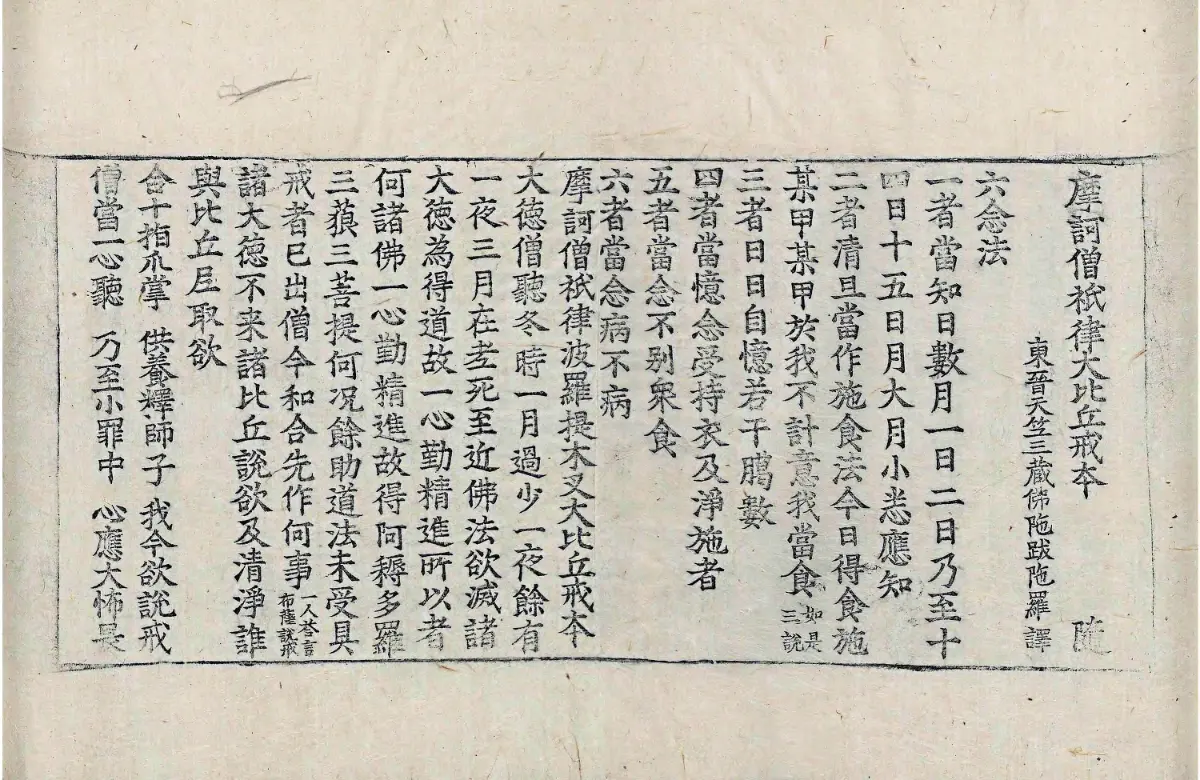 摩訶僧祇律大比丘戒本 隨
東晉天竺三藏佛陁跋陁羅譯
六念法
一者當知日數月一日二日乃至十
四日十五日月大月小悉應知
二者清旦當作施食法今日得食施
某甲某甲於我不計意我當食如是三說
三者日日自憶若干臈數
四者當憶念受持衣及淨施者
五者當念不别衆食
六者當念病不病
摩訶僧祇律波羅提木叉大比丘戒本
大德僧聽冬時一月過少一夜餘有
一夜三月在老死至近佛法欲滅諸
大德為得道故一心勤精進所以者
何諸佛一心勤精進故得阿耨多羅
三藐三菩提何況餘助道法未受具
戒者已出僧今和合先作何事一人答言布薩說戒
諸大德不来諸比丘說欲及清淨誰
與比丘尼取欲
合十指爪掌 供養釋師子 我今欲說戒
僧當一心聽 乃至小罪中 心應大怖畏